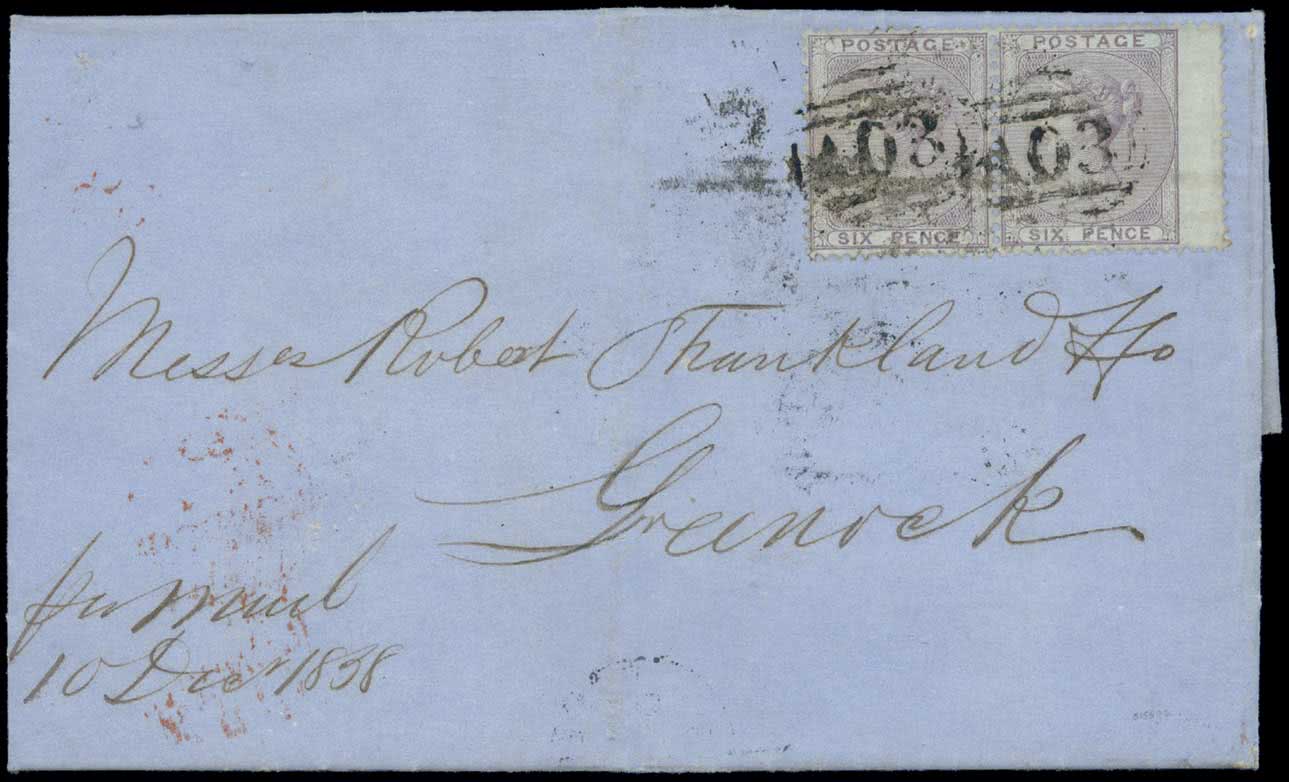 POSTAGE POSTAGE
A03 A03
SIX PENCE SIX PENCE
Messrs Robert Shankland & Co
Greenock
per mail
10 Decr 1858